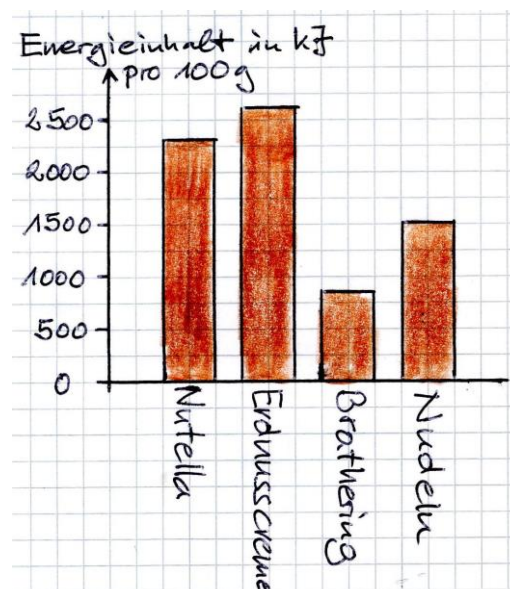 Energieinhalt in kJ
pro 100g
2500
2000
1500
1000
500
0
Nutella
Erdnusscreme
Brathering
Nudeln